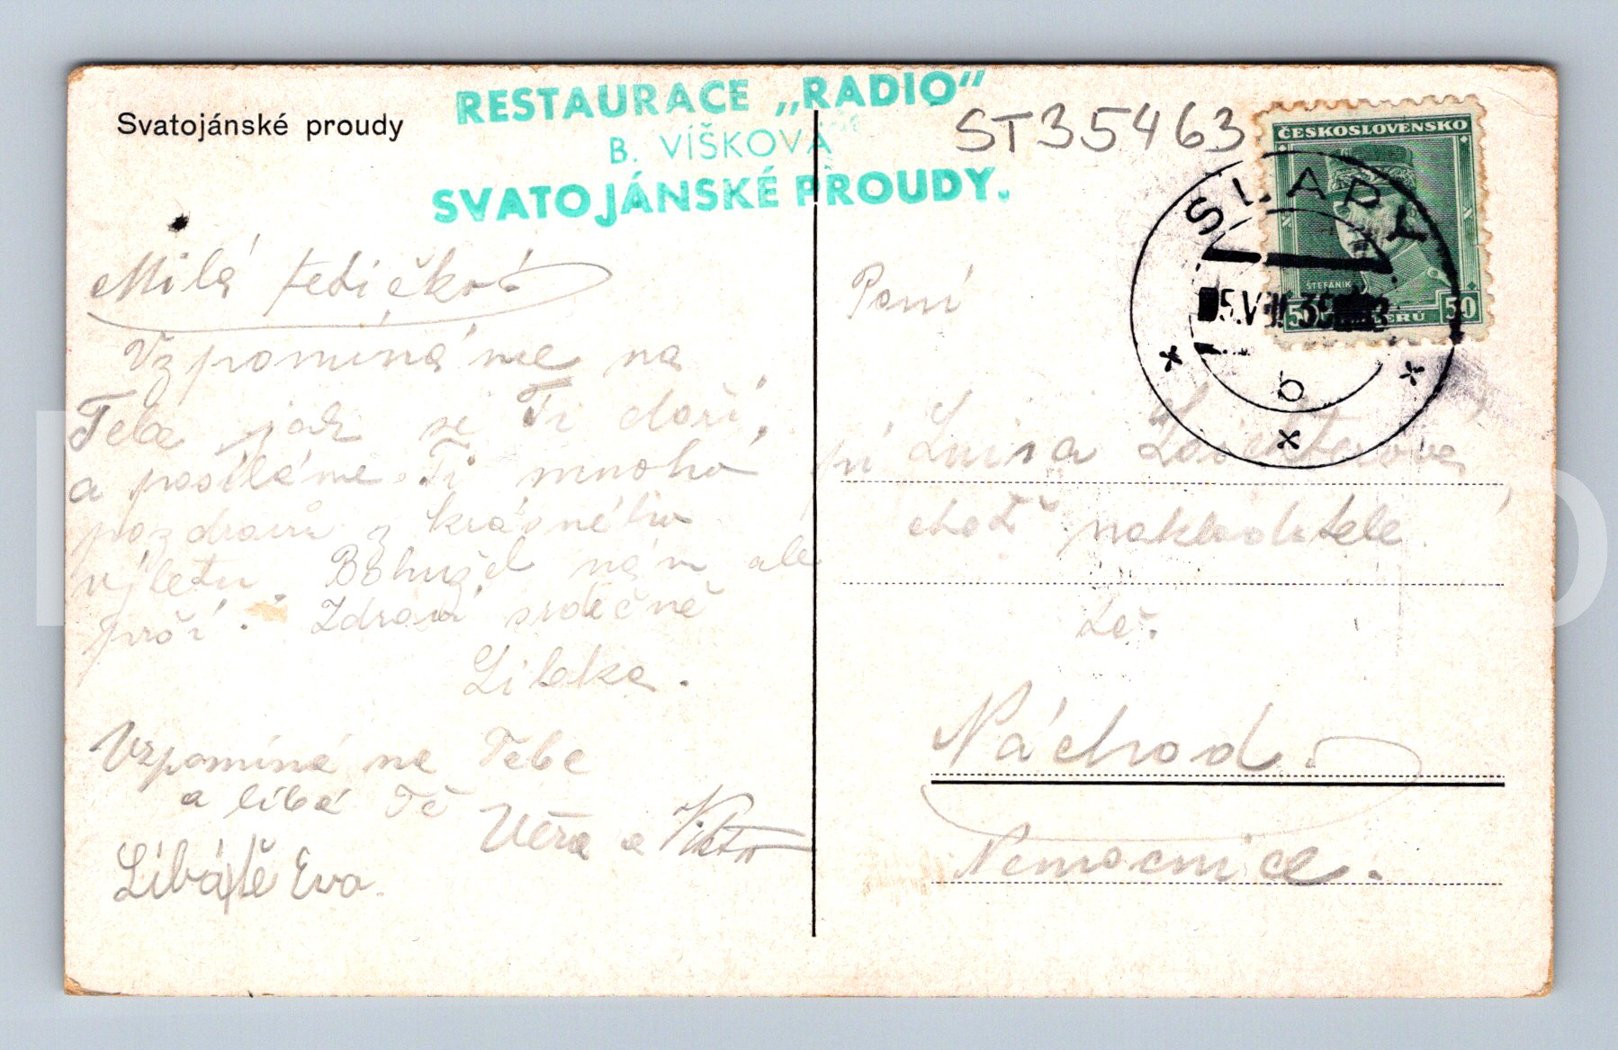 Svatojánské proudy
RESTAURACE „RADIO"
B. VÍŠKOVÁ
SVATOJÁNSKÉ PROUDY.
ST35463
ČESKOSLOVENSKO
ŠTEFÁNIK
50
SLAPY
b
Milá tetičko!
Vzpomínáme na
Tebe jak se Ti daří,
a posíláme Ti mnoho
pozdravů z krásného
výletu. Bohužel nám ale
prší. Zdraví srdečně
Libka.
Vzpomíná na Tebe
a líbá Tě Věra a
Líbá tě Eva.
Paní
pí Luisa
choť nakladatele
Náchod.
Nemocnice.